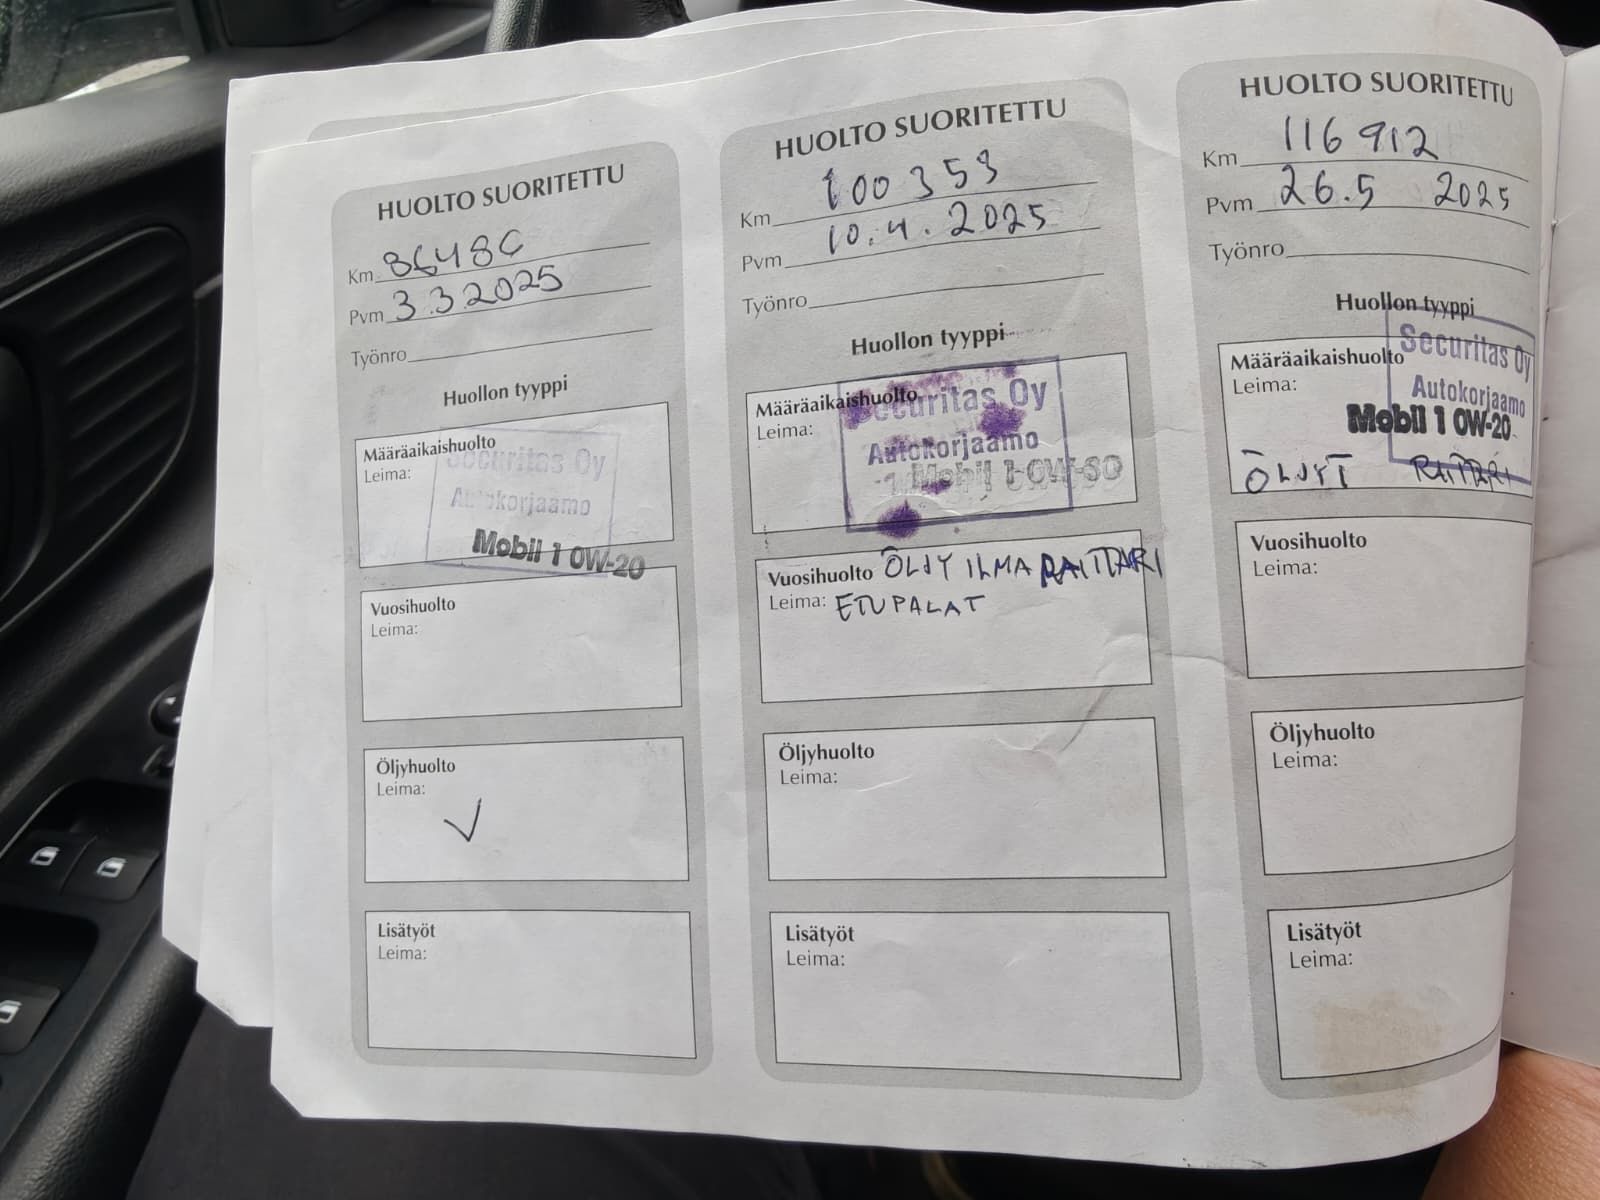 HUOLTO SUORITETTU
Km 86486
Pvm 3.3.2025
Työnro
Huollon tyyppi
Määräaikaishuolto
Leima:
Securitas Oy
Autokorjaamo
Mobil 1 0W-20
Vuosihuolto
Leima:
Öljyhuolto
Leima:
✓
Lisätyöt
Leima:
HUOLTO SUORITETTU
Km 100353
Pvm 10.4.2025
Työnro
Huollon tyyppi
Määräaikaishuolto
Leima:
Securitas Oy
Autokorjaamo
Mobil 1
Vuosihuolto ÖLJY ILMA RAITTARI
Leima: ETUPALAT
Öljyhuolto
Leima:
Lisätyöt
Leima:
HUOLTO SUORITETTU
Km 116 912
Pvm 26.5 2025
Työnro
Huollon tyyppi
Määräaikaishuolto
Leima:
Securitas Oy
Autokorjaamo
Mobil 1 0W-20
ÖLJYT
Vuosihuolto
Leima:
Öljyhuolto
Leima:
Lisätyöt
Leima: